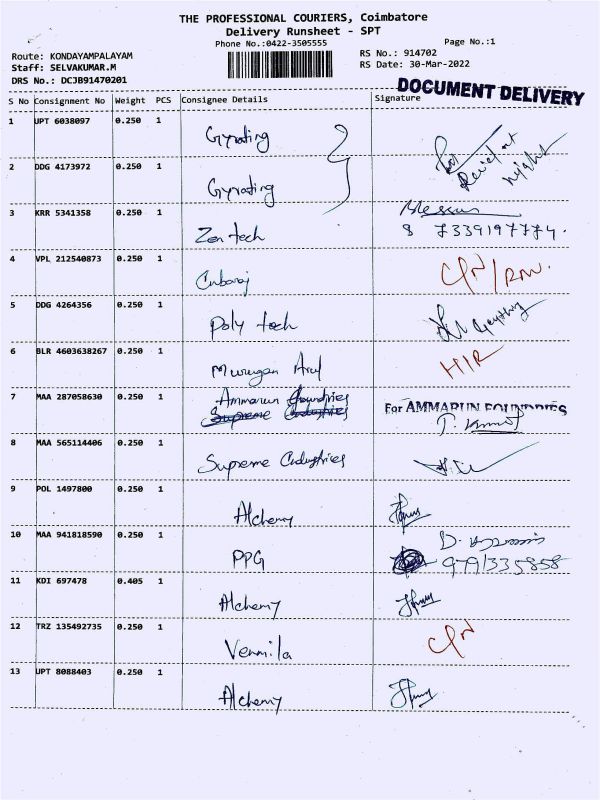 THE PROFESSIONAL COURIERS, Coimbatore
Delivery Runsheet - SPT
Phone No.:0422-3505555
Page No.:1
Route: KONDAYAMPALAYAM
RS No.: 914702
Staff: SELVAKUMAR.M
RS Date: 30-Mar-2022
DRS No.: DCJB91470201
DOCUMENT DELIVERY
S No Consignment No Weight PCS Consignee Details Signature
1 UPT 6038097 0.250 1 Gyrating
2 DDG 4173972 0.250 1 Gyrating
3 KRR 5341358 0.250 1 Zen tech 7339197774.
4 VPL 212540873 0.250 1 Cubaroj
5 DDG 4264356 0.250 1 Poly tech
6 BLR 4603638267 0.250 1 Murugan Arul
7 MAA 287058630 0.250 1 Ammarun foundries
Supreme Industries
For AMMARUN FOUNDRIES
8 MAA 565114406 0.250 1 Supreme Industries
9 POL 1497800 0.250 1 Alchemy
10 MAA 941818590 0.250 1 PPG
11 KDI 697478 0.405 1 Alchemy
12 TRZ 135492735 0.250 1 Vennila
13 UPT 8088403 0.250 1 Alchemy